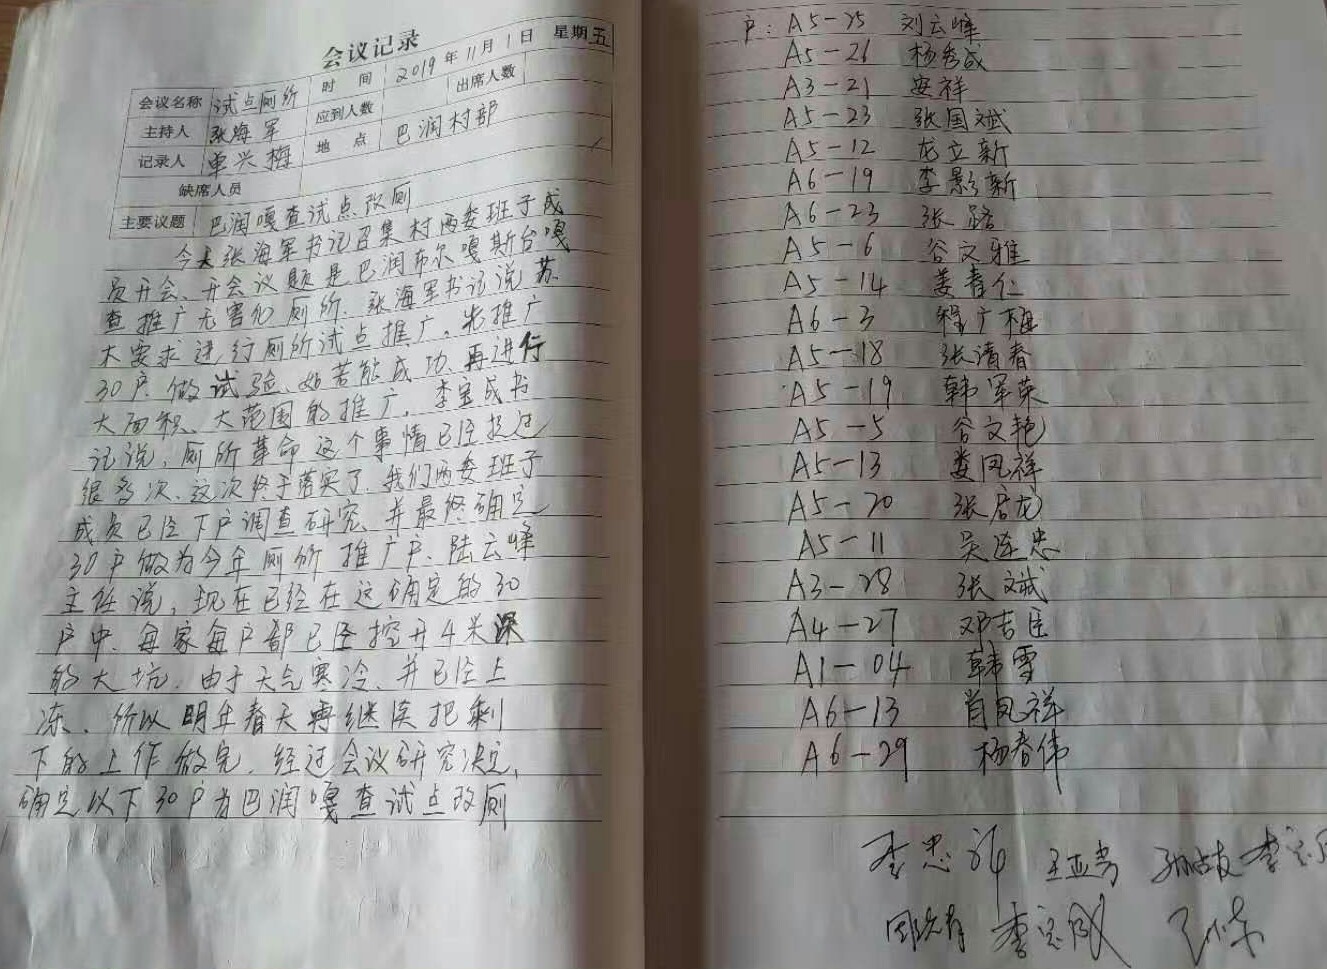 会议记录
会议名称 试点厕所 时间 2019年11月1日 星期五
主持人 张海军 应到人数 出席人数
记录人 单兴梅 地点 巴润村部
缺席人员
主要议题 巴润嘎查试点改厕
今天张海军书记召集村两委班子成
员开会、开会议题是巴润布尔嘎斯台嘎
查推广无害化厕所.张海军书记说苏
木要求进行厕所试点推广,先推广
30户.做试验、如若能成功、再进行
大面积、大范围的推广,李宝成书
记说,厕所革命这个事情已经提过
很多次、这次终于落实了.我们两委班子
成员已经下户调查研究、并最终确定
30户做为今年厕所推广户、陆云峰
主任说,现在已经在这确定的30
户中、每家每户都已经挖开4米深
的大坑.由于天气寒冷、并已经上
冻、所以明年春天再继续把剩
下的工作做完.经过会议研究决定,
确定以下30户为巴润嘎查试点改厕
户:A5-25 刘云峰
A5-26 杨秀成
A3-21 安祥
A5-23 张国斌
A5-12 龙立新
A6-19 李影新
A6-23 张路
A5-6 谷文雅
A5-14 姜青仁
A6-3 程广植
A5-18 张清春
A5-19 韩军英
A5-5 谷文艳
A5-13 娄凤祥
A5-20 张启龙
A5-11 吴连忠
A3-28 张文斌
A4-27 邓吉臣
A1-04 韩雪
A6-13 肖凤祥
A6-29 杨春伟
李忠
李宝成